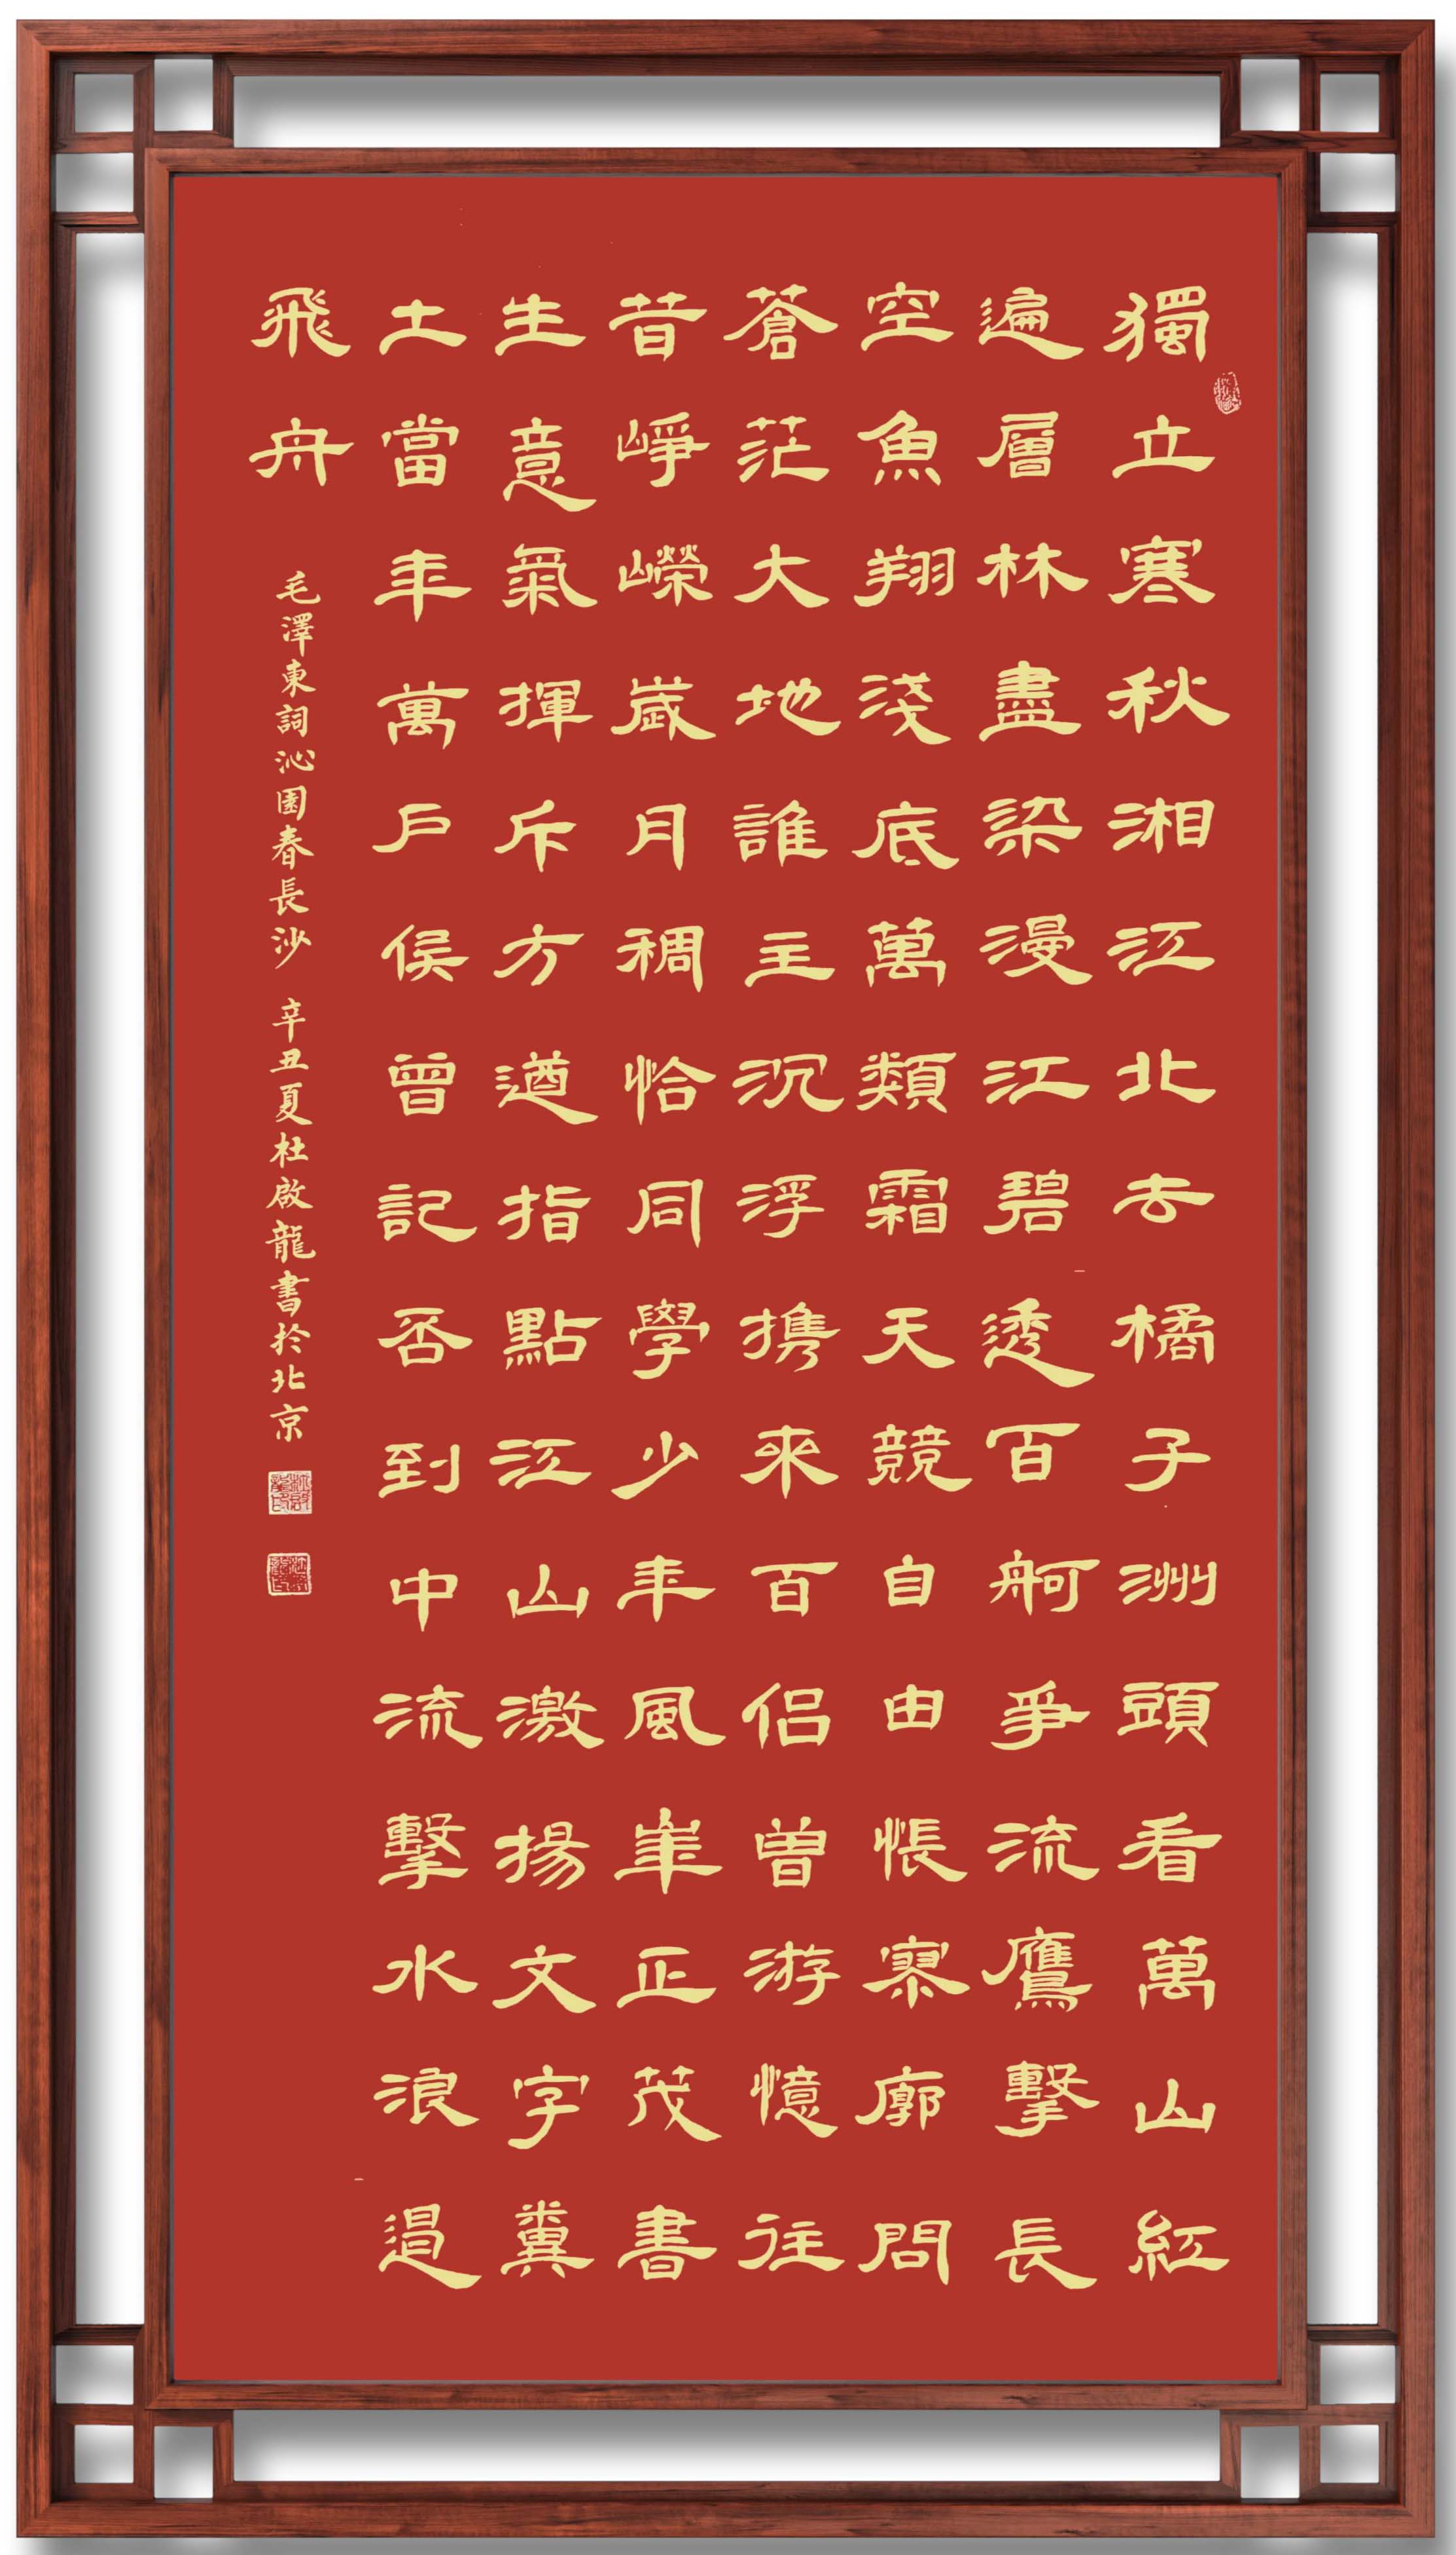 獨立寒秋湘江北去橘子洲頭看萬山紅
遍層林盡染漫江碧透百舸爭流鷹擊長
空魚翔淺底萬類霜天競自由悵寥廓問
蒼茫大地誰主沉浮携來百侶曾游憶往
昔崢嶸歲月稠恰同學少年風華正茂書
生意氣揮斥方遒指點江山激揚文字糞
土當年萬戶侯曾記否到中流擊水浪遏
飛舟
毛澤東詞沁園春長沙 辛丑夏杜啟龍書於北京